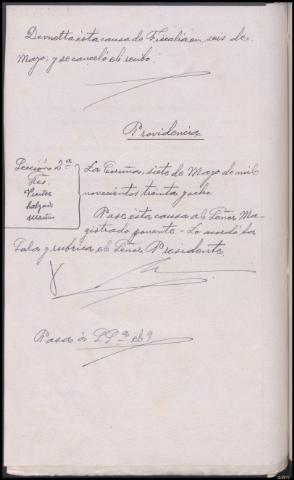 Devuelta esta causa de Fiscalía en seis de
Mayo; y se canceló el recibo.
Providencia
Sección 2ª
Sres.
La Coruña, siete de Mayo de mil
novecientos treinta y ocho.
Pase esta causa al Señor Ma-
gistrado ponente.- Lo acordó la
Sala y rubrica el Señor Presidente
Pasa á
el 9